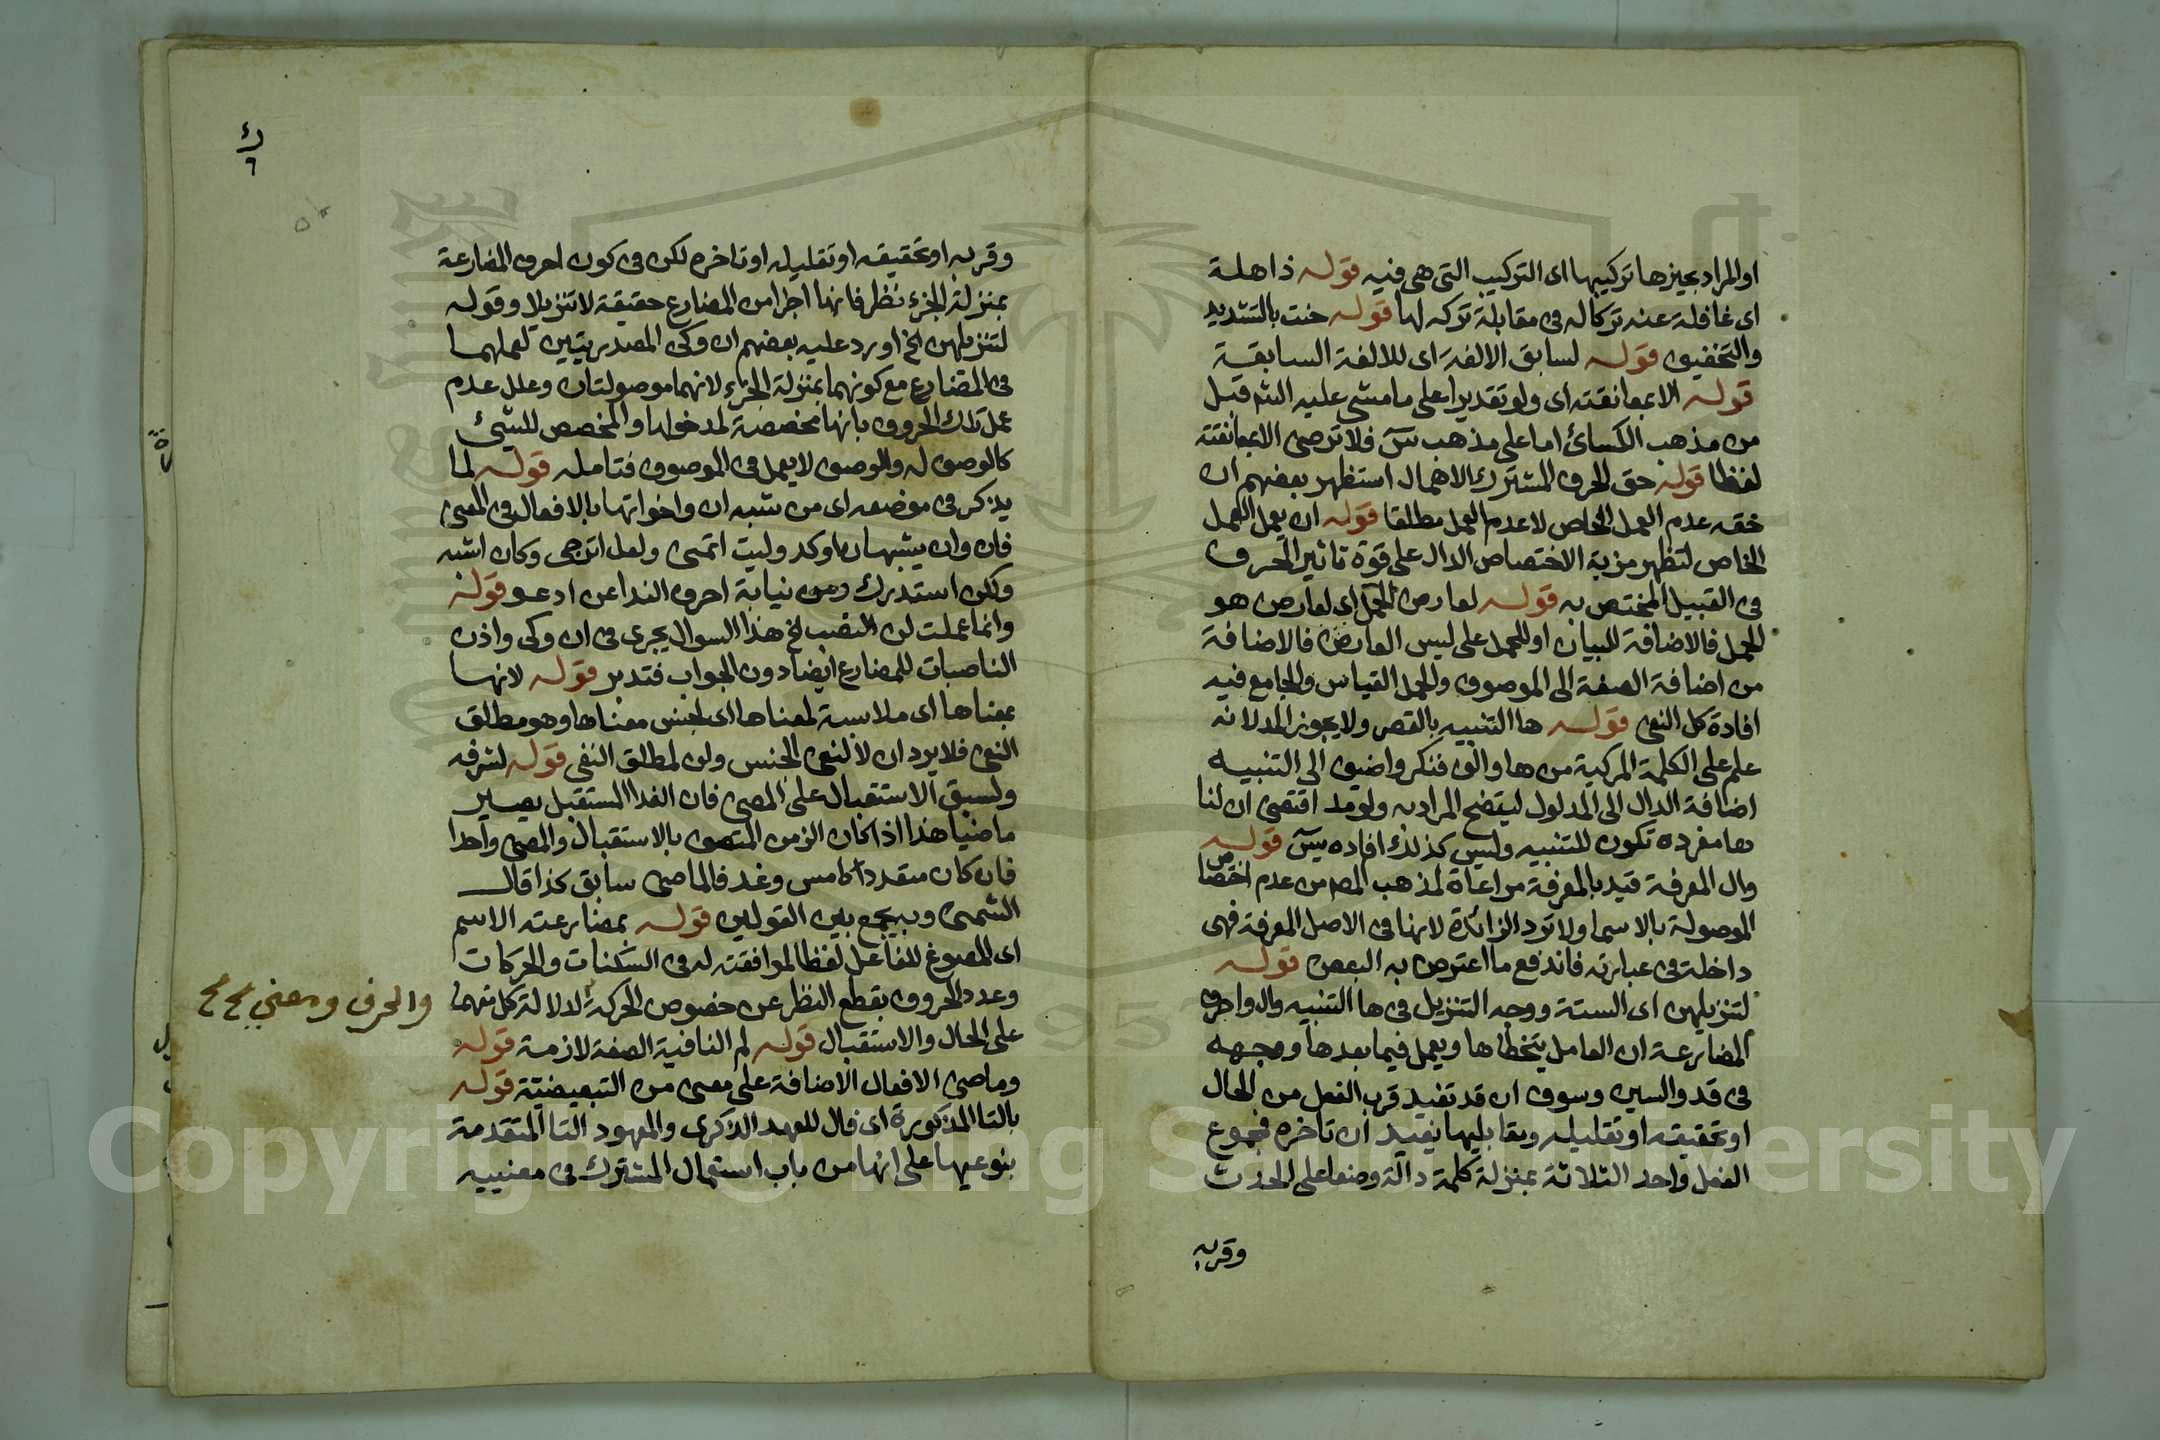 او المراد بحيزها تركيبها اى التركيب التى هى فيه قوله ذاهلة
اى غافلة عنه تركا له فى مقابلة تركه لها قوله حنت بالتشديد
والتخفيف قوله لسابق الالفة اى للالفة السابقة
قوله الا بمعانقته اى ولو تقديرا على ما مشى عليه الشم قبل
من مذهب الكسائ اما على مذهب س فلا ترضى الا بمعانقته
لفظا قوله حق الحرف المشترك الاهمال استظهر بعضهم ان
حقه عدم العمل الخاص لا عدم العمل مطلقا قوله ان يعمل العمل
الخاص لتظهر مزية الاختصاص الدال على قوة تاثير الحرف
فى القبيل المختص به قوله لعارض الحمل اى لعارض هو
الحمل فالاضافة للبيان او للحمل على ليس العارض فالاضافة
من اضافة الصفة الى الموصوف والحمل القياس والجامع فيه
افادة كل النفى قوله ها التنبيه بالقصر ولا يجوز المد لانه
علم على الكلمة المركبة من ها والف فنكر واضيف الى التنبيه
اضافة الدال الى المدلول ليتضح المراد به ولو مد اقتضى ان لنا
هاء مفردة تكون للتنبيه وليس كذلك افاده يس قوله
وال المعرفة قيد بالمعرفة مراعاة لمذهب المص من عدم اختصاص
الموصولة بالاسما ولا ترد الزائدة لانها فى الاصل المعرفة فهى
داخلة فى عبارته فاندفع ما اعترض به البعض قوله
لتنزيلهن اى الستة ووجه التنزيل فى ها التنبيه وال واحرف
المضارعة ان العامل يتخطاها ويعمل فيما بعدها ووجهه
فى قد والسين وسوف ان قد تفيد قرب الفعل من الحال
او تحقيقه او تقليله ومقابليها يفيد ان تاخره فمجموع
الفعل واحد الثلاثة بمنزلة كلمة دالة وضعا على الحدث
وقربه
وقربه او تحقيقه او تقليله او تاخره لكن فى كون احرف المضارعة
بمنزلة الجزء نظر فانها اجزا من المضارع حقيقة لا تنزيلا وقوله
لتنزيلهن الخ اورد عليه بعضهم ان وكى المصدريتين لعملهما
فى المضارع مع كونهما بمنزلة الجزء لانهما موصولتان وعلل عدم
عمل تلك الحروف بانها مخصصة لمدخولها والمخصص للشيئ
كالوصف له والوصف لا يعمل فى الموصوف فتامله قوله لما
يذكر فى موضعه اى من شبه ان واخواتها بالافعال فى المعنى
فان وان يشبهان اوكد وليت اتمنى ولعل اترجى وكان اشبه
ولكن استدرك ومن نيابة احرف الندا عن ادعو قوله
وانما عملت لن النصب الخ هذا السوال يجرى فى ان وكى واذن
الناصبات للمضارع ايضا دون الجواب فتدبر قوله لانها
بمعناها اى ملابسة لمعناها اى لجنس معناها وهو مطلق
النفى فلا يرد ان لا لنفى الجنس ولن لمطلق النفى قوله لشرفه
ولسبق الاستقبال على المضى فان الغد المستقبل يصير
ماضيا هذا اذا كان الزمن المتصف بالاستقبال والمضى واحدا
فان كان متعددا كامس وغد فالماضى سابق كذا قال
الشمنى وبه يجمع بين القولين قوله بمضارعته الاسم
اى المصوغ للفاعل لفظا لموافقته له فى السكنات والحركات
وعدد الحروف بقطع النظر عن خصوص الحركة ولدلالة كل منهما
على الحال والاستقبال قوله لم النافية الصفة لازمة قوله
وماضى الافعال الاضافة على معنى من التبعيضية قوله
بالتا المذكورة اى فال للعهد الذكرى والمعهود التا المتقدمة
بنوعيها على انها من باب استعمال المشترك فى معنييه
والحرف ومعنى صح صح